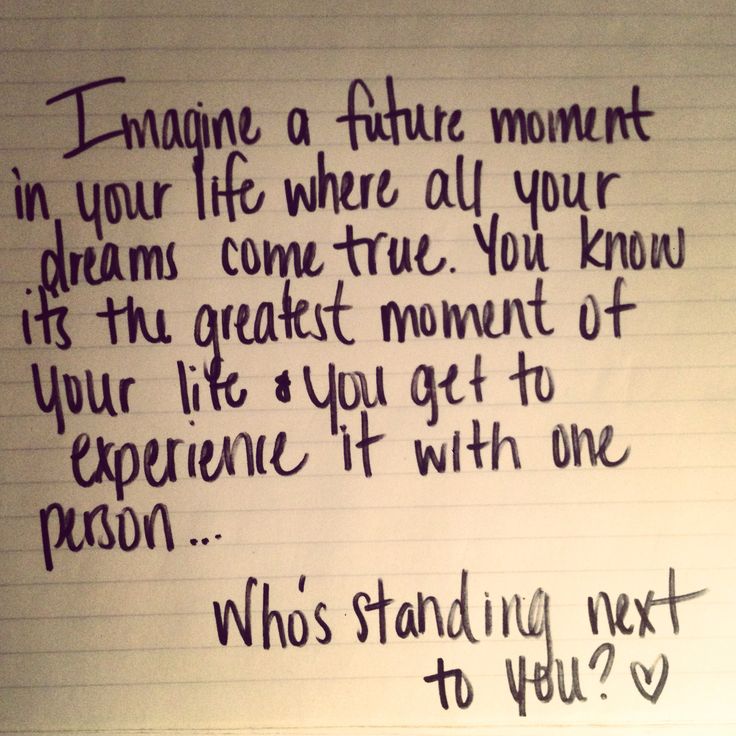 Imagine a future moment
in your life where all your
dreams come true. You know
it's the greatest moment of
your life & you get to
experience it with one
person...
Who's standing next
to you? ♡